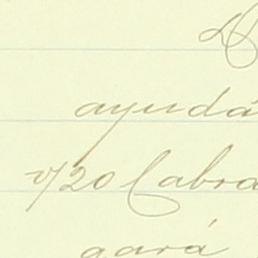 ayudá
v/20 Cabra
gará